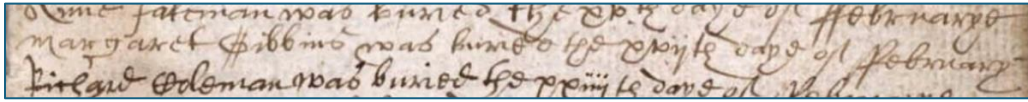 Anne Fateman was buried the xvth daye of ffebruarye
Margaret Gibbins was buried the xviith daye of February
Richard Coleman was buried the xxiiiith daye of